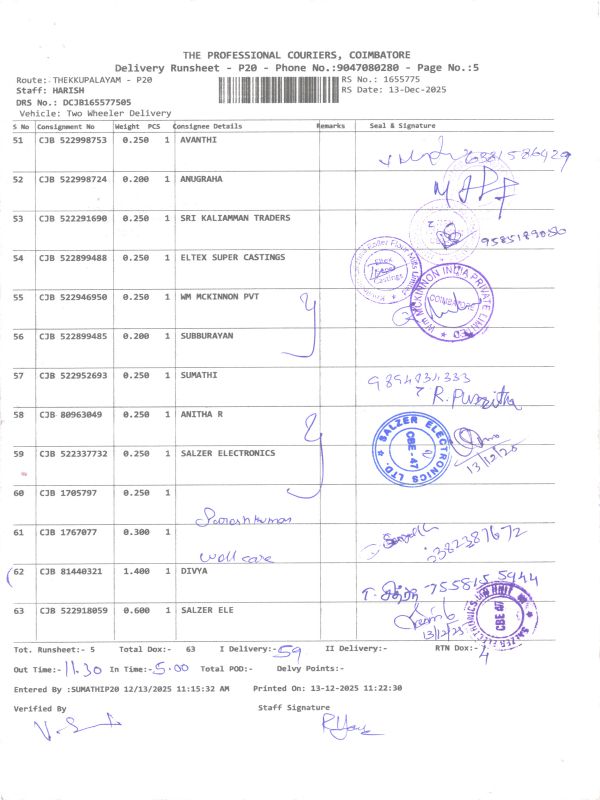 THE PROFESSIONAL COURIERS, COIMBATORE
Delivery Runsheet - P20 - Phone No.:9047080280 - Page No.:5
Route: THEKKUPALAYAM - P20
RS No.: 1655775
Staff: HARISH
RS Date: 13-Dec-2025
DRS No.: DCJB165577505
Vehicle: Two Wheeler Delivery
S No Consignment No Weight PCS Consignee Details Remarks Seal & Signature
51 CJB 522998753 0.250 1 AVANTHI
52 CJB 522998724 0.200 1 ANUGRAHA
53 CJB 522291690 0.250 1 SRI KALIAMMAN TRADERS 9585189086
54 CJB 522899488 0.250 1 ELTEX SUPER CASTINGS
Eltex
Castings
55 CJB 522946950 0.250 1 WM MCKINNON PVT
Wm MCKINNON INDIA PRIVATE LIMITED
COIMBATORE
56 CJB 522899485 0.200 1 SUBBURAYAN
57 CJB 522952693 0.250 1 SUMATHI
58 CJB 80963049 0.250 1 ANITHA R
59 CJB 522337732 0.250 1 SALZER ELECTRONICS
SALZER ELECTRONICS LTD.
CBE - 47
13/12/25
60 CJB 1705797 0.250 1
61 CJB 1767077 0.300 1
Wall care
62 CJB 81440321 1.400 1 DIVYA
63 CJB 522918059 0.600 1 SALZER ELE
13/12/25
SALZER ELECTRONICS
CBE 47
Tot. Runsheet:- 5 Total Dox:- 63 I Delivery:- 59 II Delivery:- RTN Dox:- 4
Out Time:- 11.30 In Time:- 5.00 Total POD:- Delvy Points:-
Entered By :SUMATHIP20 12/13/2025 11:15:32 AM Printed On: 13-12-2025 11:22:30
Verified By Staff Signature